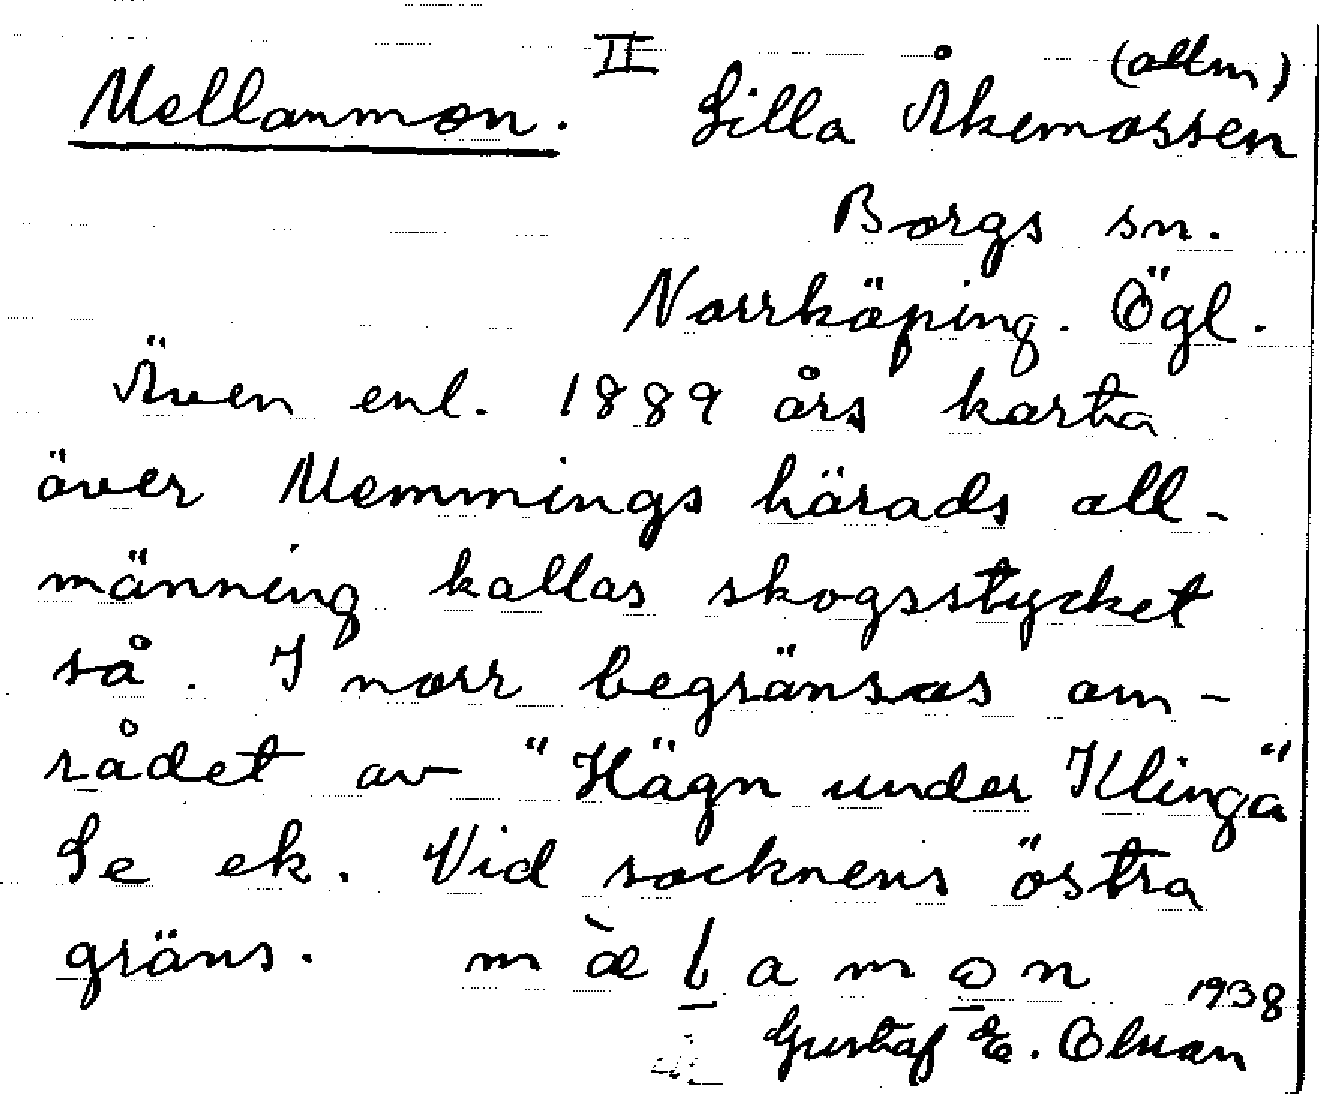 II (allm)
Mellanmon. Lilla Åkemossen
Borgs sn.
Norrköping. Ögl.
Även enl. 1889 års karta
över Memmings härads all-
männing kallas skogsstycket
så. I norr begränsas om-
rådet av "Hägn under Klinga"
Se ek. Vid socknens östra
gräns. 1938
Gustaf E. Olsson